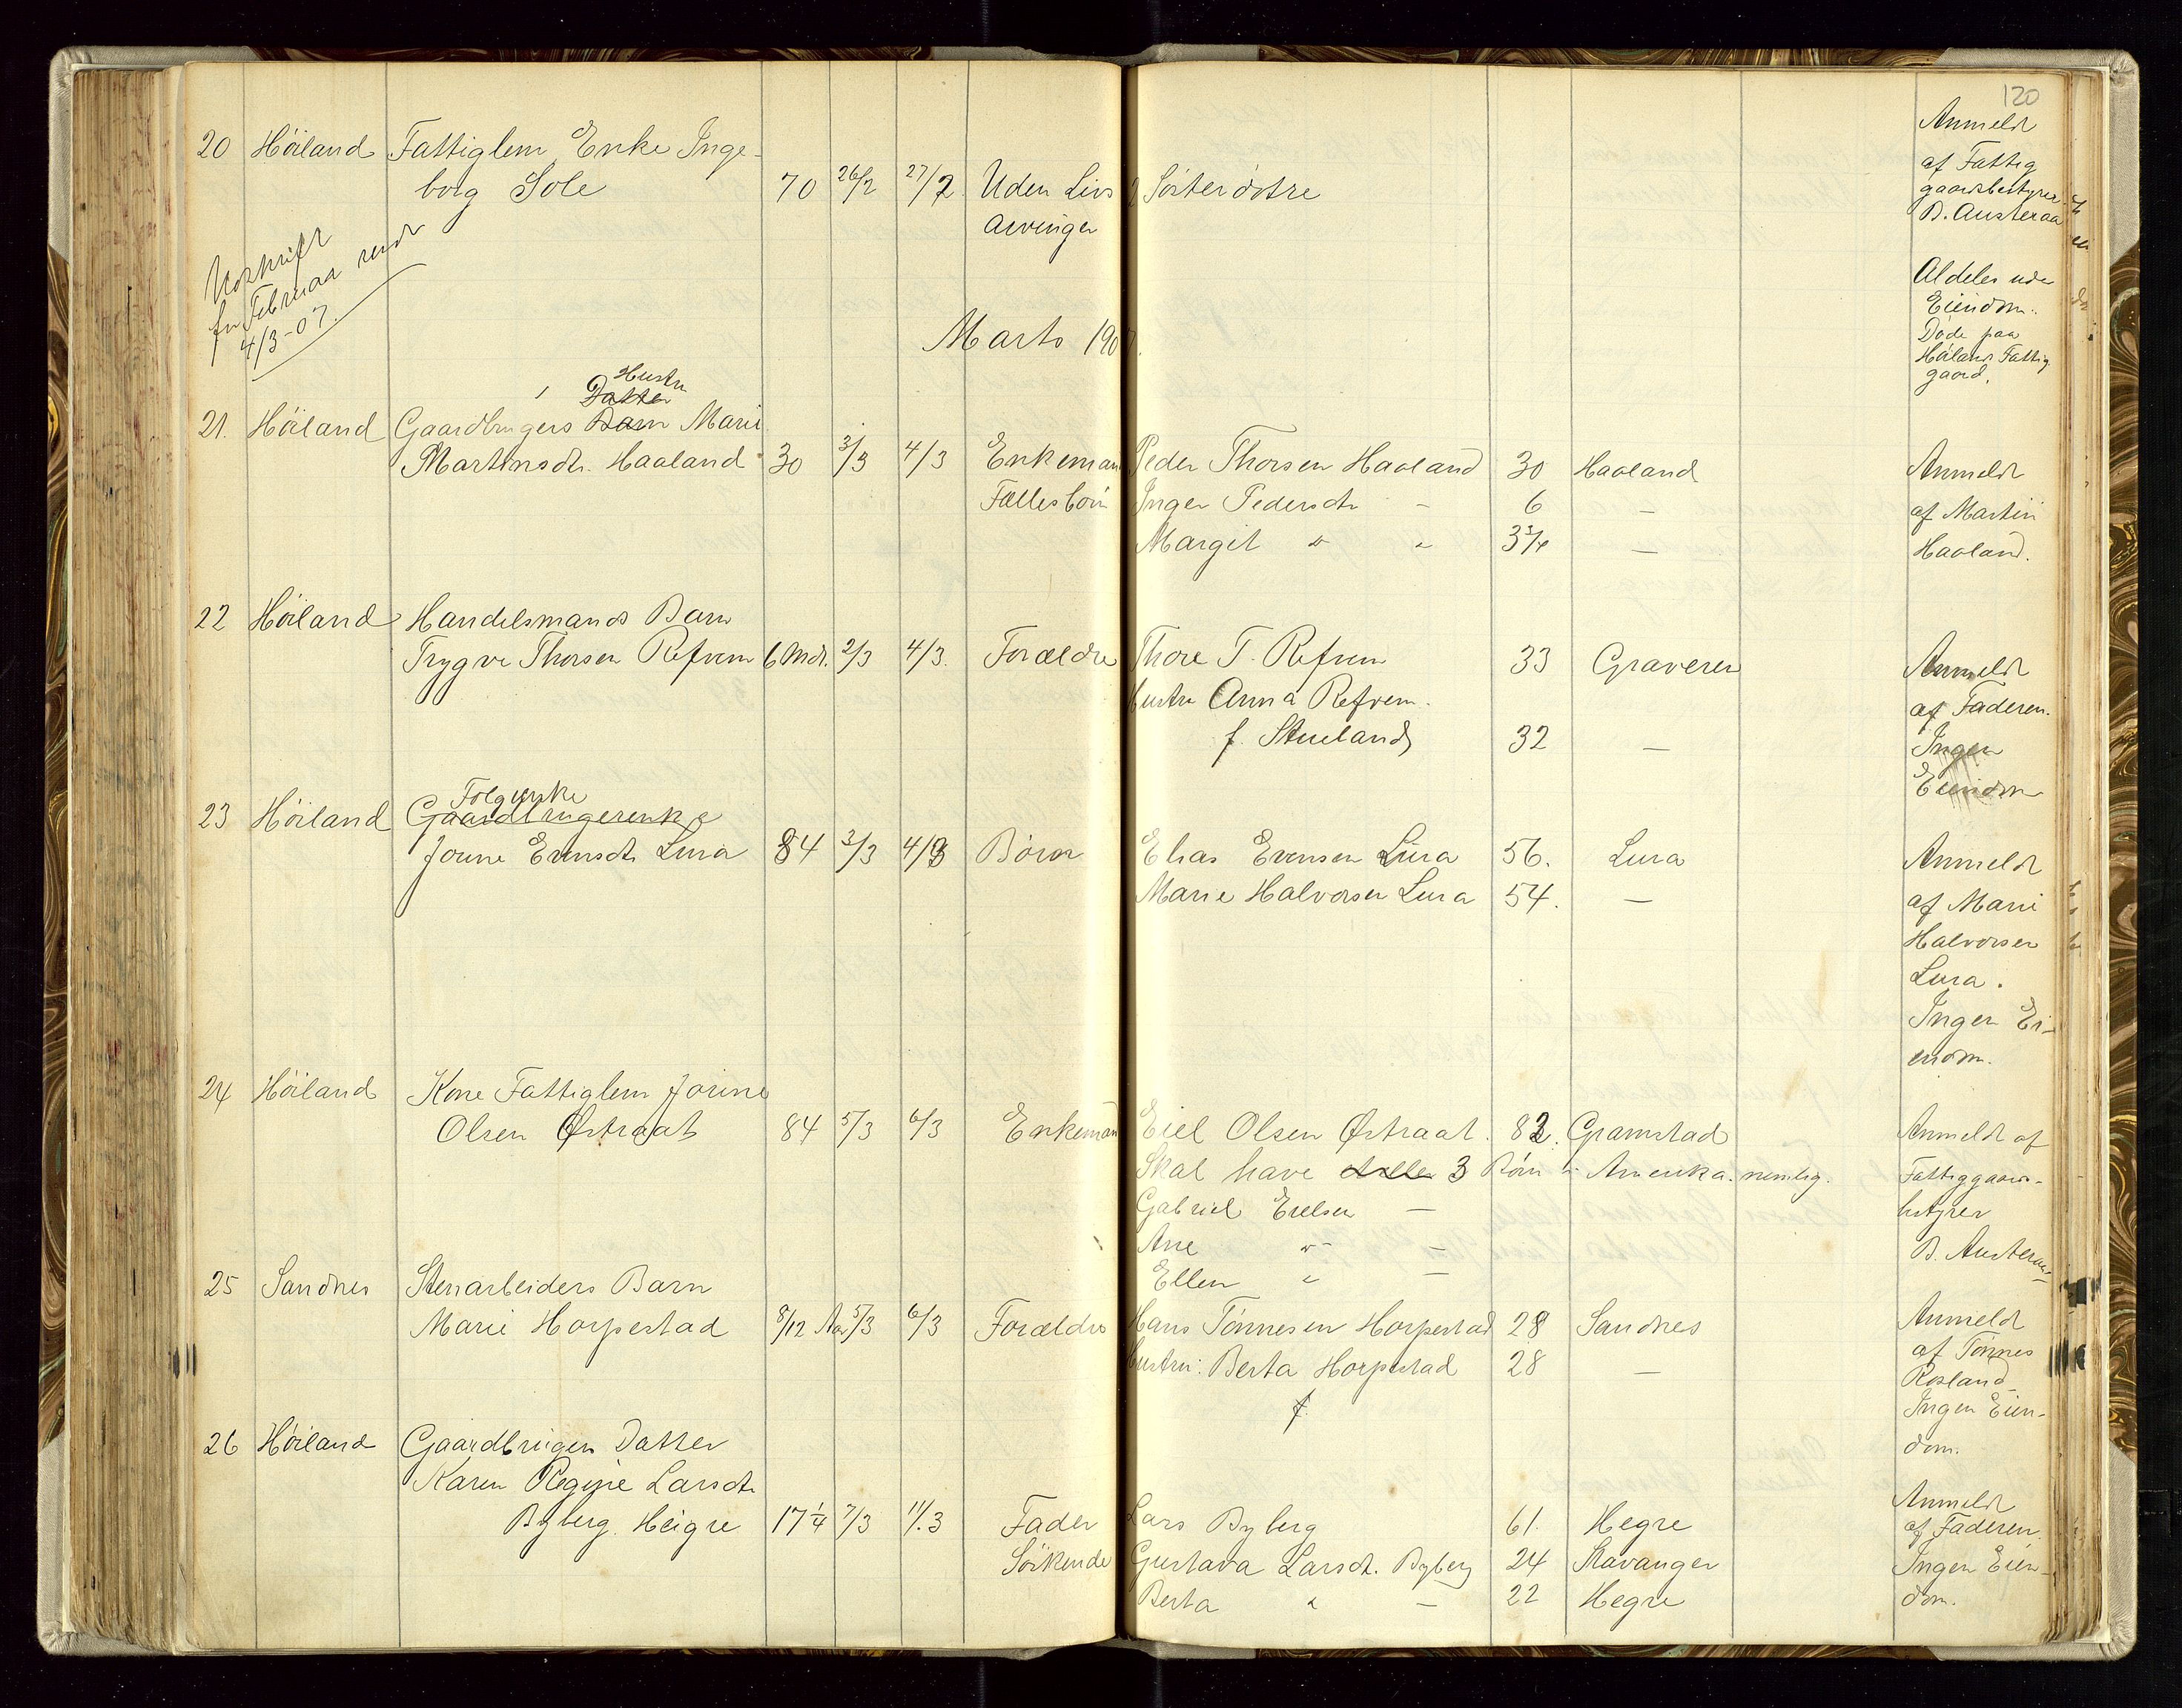 120
20 Höiland Fattiglem Enke Inge-
borg Sole 70 26/2 27/2 Uden Livs 2 Sösterdötre
Arvinger
Anmeldt
af Fattig
gaardsbestyrer
B. Austeraa
Aldeles uden
Eiendom.
Döde paa
Höilands Fattig
gaard.
Udskrift
for Februar sendt
4/3-07.
Marts 1907.
Hustru
Datter
21. Höiland Gaardbrugers Barn Marie
Martinsdtr. Haaland 30 3/3 4/3 Enkemand Peder Thorsen Haaland 30 Haaland
Fællesbörn Inger Pedersdtr - 6 -
Margit " " 3 3/4 -
Anmeldt
af Martin
Haaland.
22 Höiland Handelsmands Barn
Trygve Thorsen Refvem 6 Mdr. 2/3 4/3. Forældre Thore T. Refvem 33 Graveren
Hustru Anna Refvem.
f. Stueland 32 -
Anmeldt
af Faderen.
Ingen
Eiendom
Folgeenke
23 Höiland Gaardbrugerenke
Jorine Evensdtr Lura 84 3/3 4/3 Börn Elias Evensen Lura 56. Lura
Marie Halvorsen Lura 54. -
Anmeldt
af Marie
Halvorsen
Lura.
Ingen Ei-
endom.
24 Höiland Kone Fattiglem Jorine
Olsen Østraat 84 5/3 6/3 Enkemand Eiel Olsen Østraat. 82. Gramstad
Skal have 3 Börn i Amerika. nemlig.
Gabriel Eielsen -
Ane " -
Ellen " -
Anmeldt af
Fattiggaards-
bestyrer
B. Austeraa
25 Sandnes Stenarbeiders Barn
Marie Horpestad 8/12 Aar 5/3 6/3 Forældre Hans Tönnesen Horpestad 28 Sandnes
Hustru: Berta Horpestad 28 -
f.
Anmeldt
af Tönnes
Rosland
Ingen Eien-
dom.
26 Höiland Gaardbruger Datter
Karen Regine Larsdtr
Byberg Heigre 17 1/4 7/3 11/3 Fader Lars Byberg 61. Hegre
Söskende Gustava Larsdt. Byberg 24 Stavanger
Berta " - 22 Hegre
Anmeldt
af Faderen.
Ingen Eien-
dom.